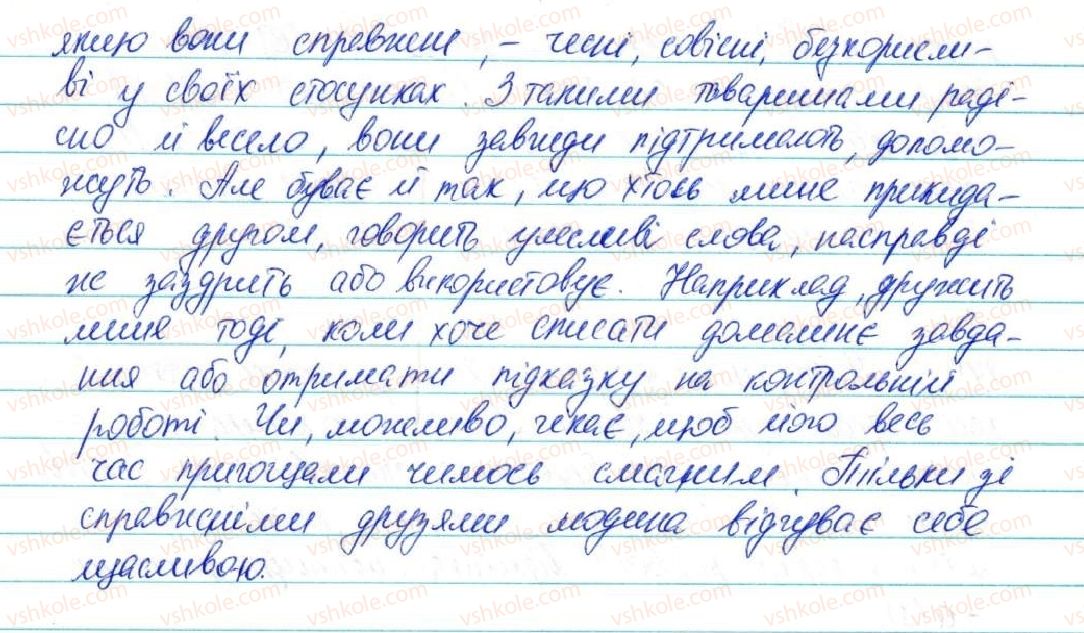 якщо вони справжні, – чесні, совісні, безкорисли-
ві у своїх стосунках. З такими товаришами раді-
сно й весело, вони завжди підтримають, допомо-
жуть. Але буває й так, що хтось лише прикида-
ється другом, говорить улесливі слова, насправді
же заздрить або використовує. Наприклад, дружить
лише тоді, коли хоче списати домашнє завда-
ння або отримати підказку на контрольній
роботі. Чи, можливо, чекає, щоб його весь
час пригощали чимось смачним. Тільки зі
справжніми друзями людина відчуває себе
щасливою.